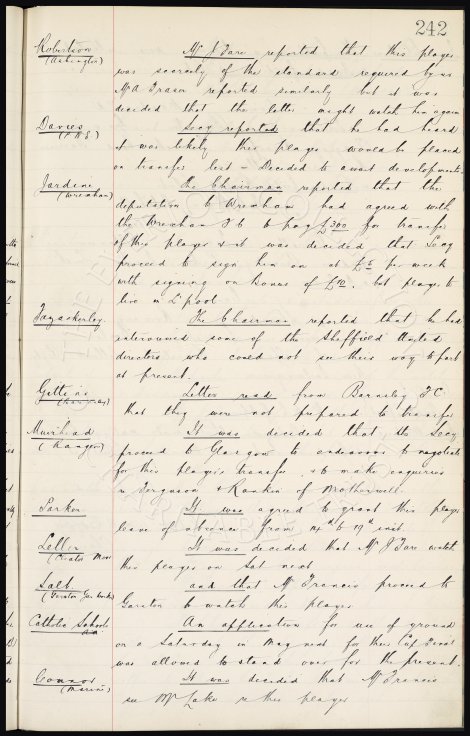 242
Robertson Mr J Fare reported that this player
(Ashington) was scarcely of the standard required by us
Mr A Fraser reported similarly but it was
decided that the latter might watch him again
Davies Secy reported that he had heard
it was likely this player would be placed
on transfer list – Decided to await developments
Jardine The Chairman reported that the
(Wrexham) deputation to Wrexham had agreed with
the Wrexham F C to pay £300 for transfer
of this player & it was decided that Secy
proceed to sign him on at £5 per week
with signing on bonus of £10. but player to
live in L'pool
Fazackerley The Chairman reported that he had
interviewed some of the Sheffield United
directors who could not see their way to part
at present.
Gittins Letter read from Barnsley F C
(Barnsley) that they were not prepared to transfer
Muirhead It was decided that the Secy
(Rangers) proceed to Glasgow to endeavour to negotiate
for this player's transfer & to make enquiries
re Ferguson & Rankin of Motherwell.
Parker It was agreed to grant this player
leave of absence from 14th to 19th inst.
It was decided that Mr J Fare watch
this player on Sat next
Salt and that Mr Francis proceed to
Garston to watch this player
Catholic Schools An application for use of ground
on a Saturday in May next for their Cup Final
was allowed to stand over for the present.
Connor It was decided that Mr Francis
(Marine) see Mr Lake re this player